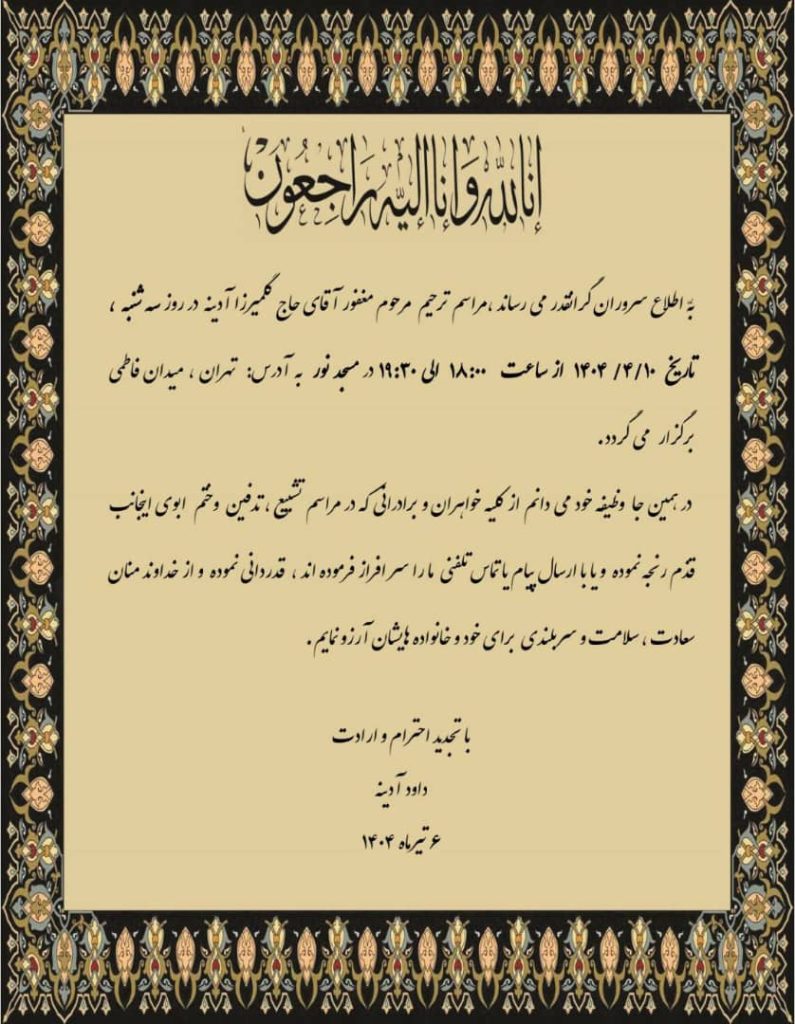 انا لله و انا الیه راجعون
به اطلاع سروران گرانقدر می رساند ،مراسم ترحیم مرحوم مغفور آقای حاج گلمیرزا آدینه در روز سه شنبه ،
تاریخ ۱۴۰۴/۴/۱۰ از ساعت ۱۸:۰۰ الی ۱۹:۳۰ در مسجد نور به آدرس: تهران ، میدان فاطمی
برگزار می گردد.
در همین جا وظیفه خود می دانم از کلیه خواهران و برادرانی که در مراسم تشییع ، تدفین وختم ابوی اینجانب
قدم رنجه نموده و یا با ارسال پیام یا تماس تلفنی ما را سرافراز فرموده اند ، قدردانی نموده و از خداوند منان
سعادت ، سلامت و سربلندی برای خود و خانواده هایشان آرزو نمایم.
با تجدید احترام و ارادت
داود آدینه
۶ تیرماه ۱۴۰۴